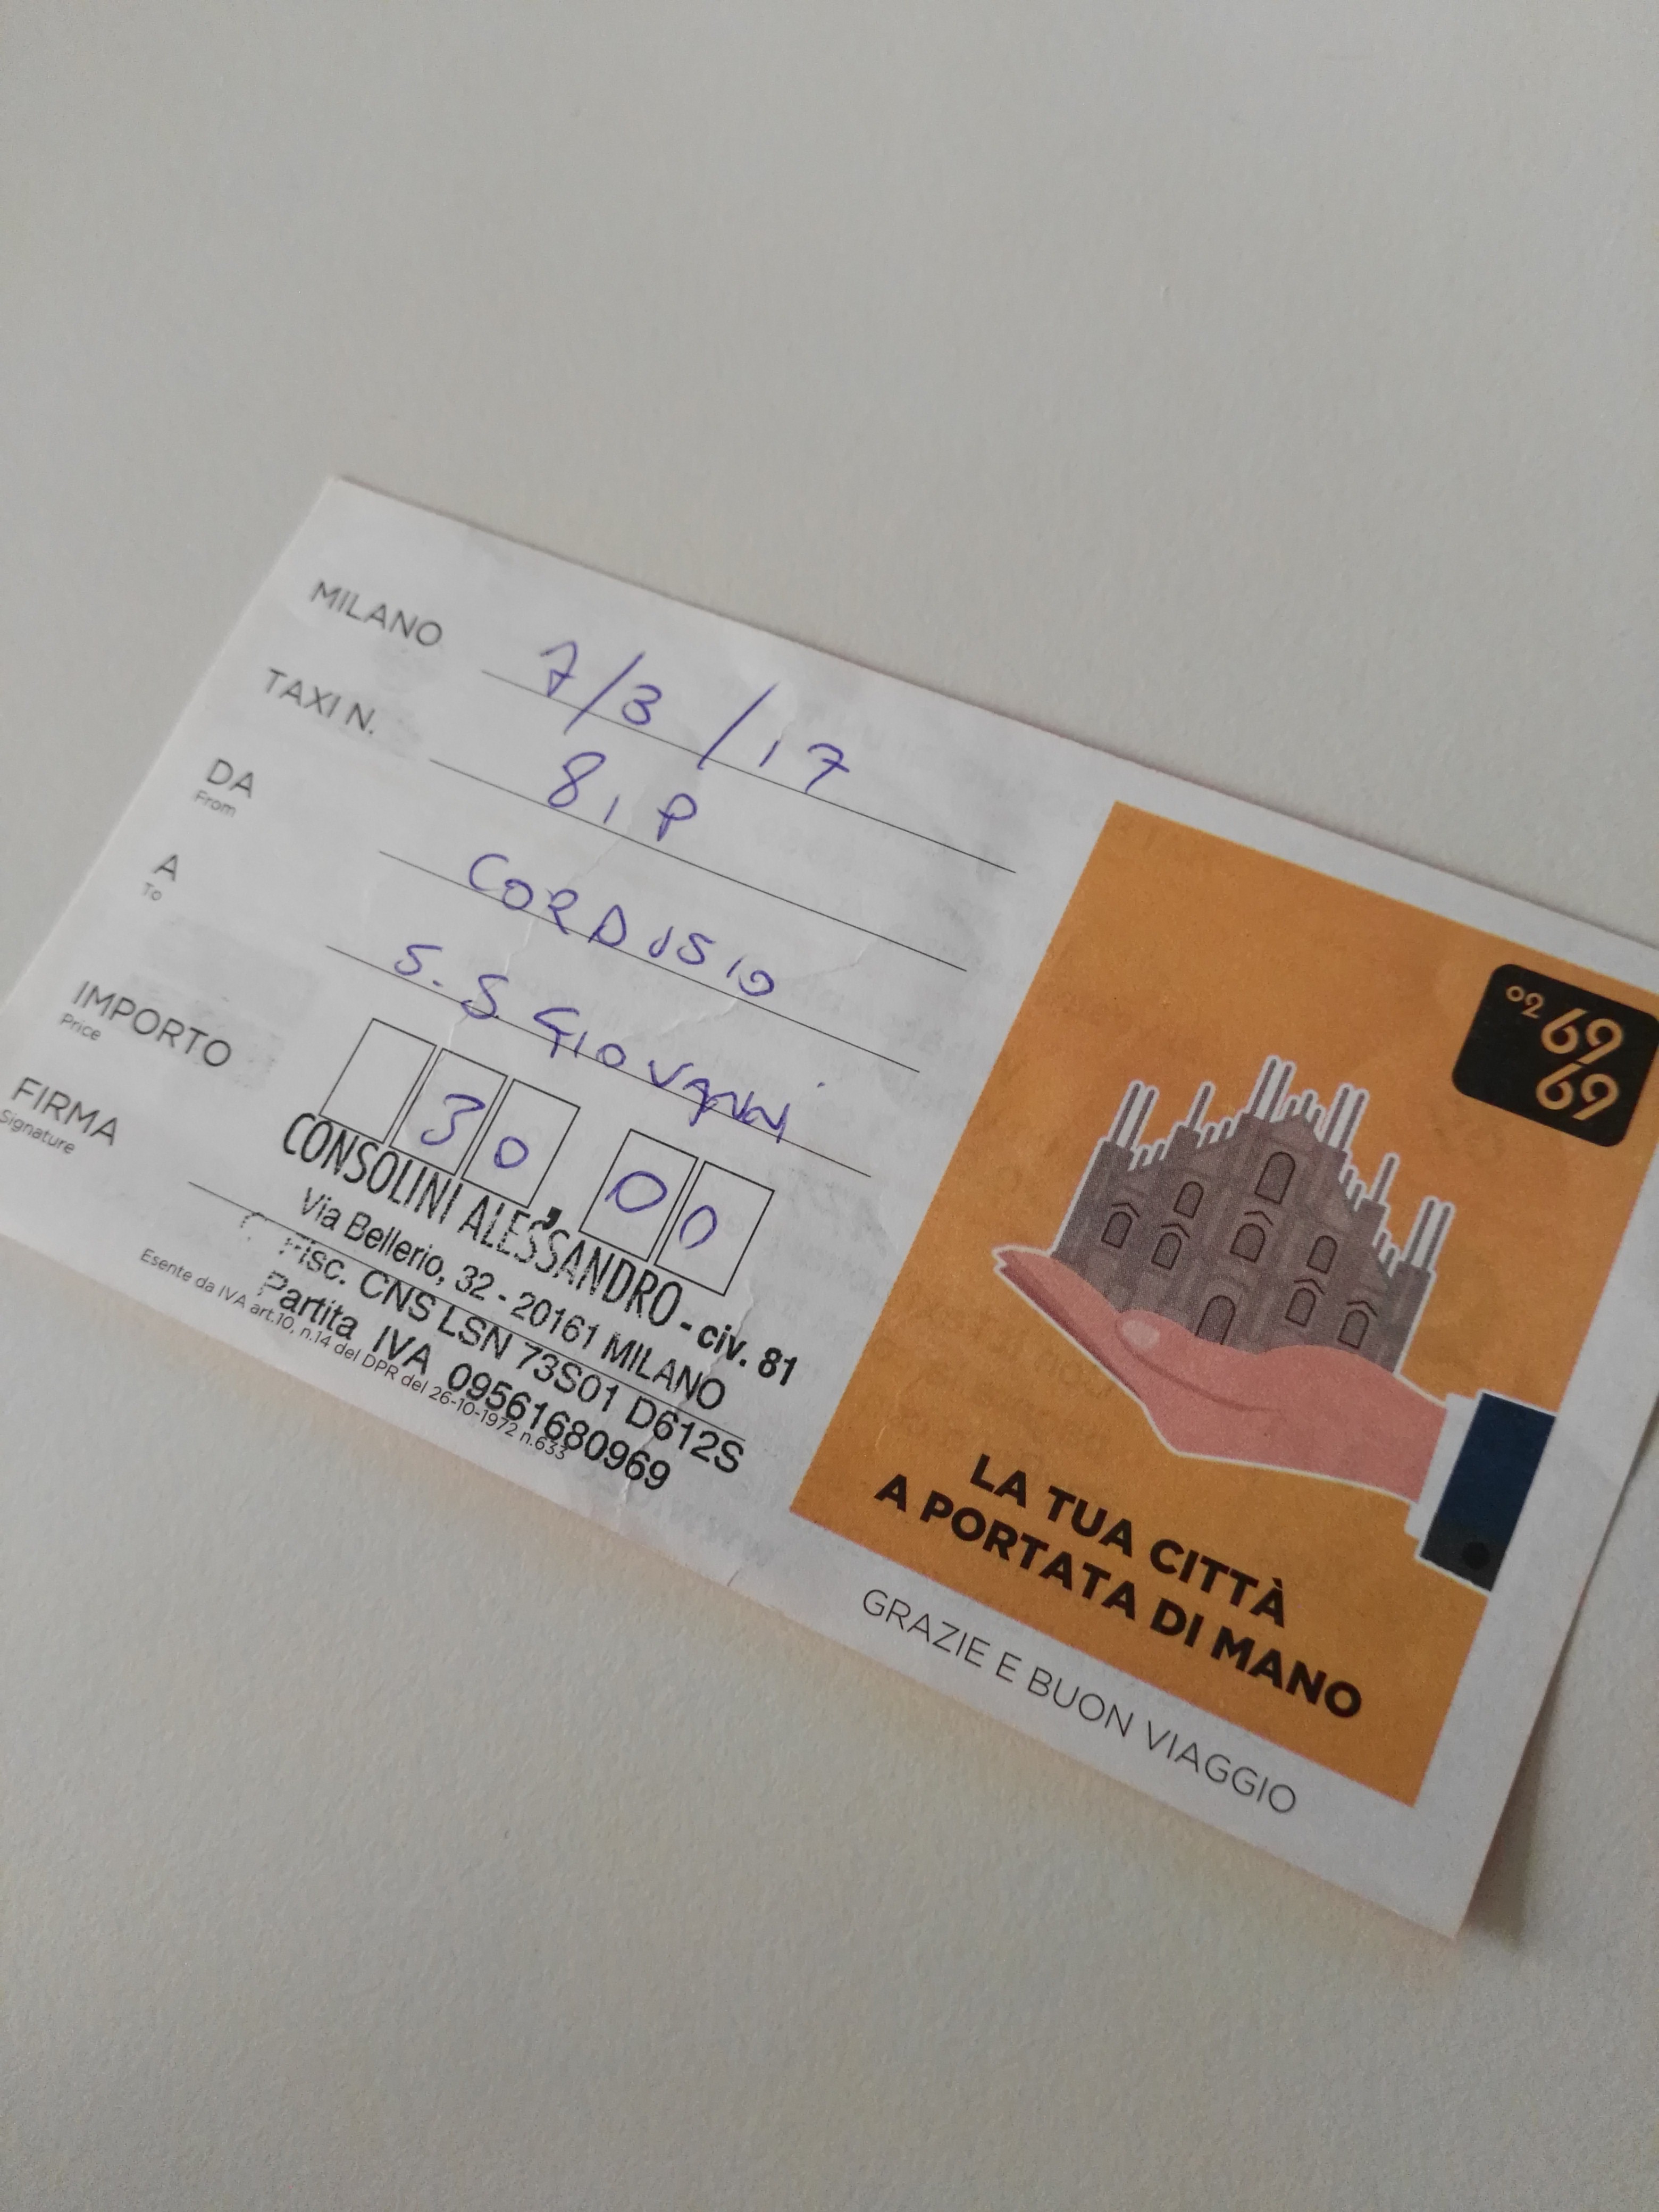 MILANO 7/3/17
TAXI N. 81P
DA CORDUSIO
From
A S.S GIOVANNI
To
IMPORTO 30,00
Price
FIRMA
Signature
CONSOLINI ALESSANDRO - civ. 81
Via Bellerio, 32 - 20161 MILANO
Fisc. CNS LSN 73S01 D612S
Partita IVA 09561680969
Esente da IVA art.10, n.14 del DPR del 26-10-1972 n.633
02 69 69
LA TUA CITTÀ
A PORTATA DI MANO
GRAZIE E BUON VIAGGIO